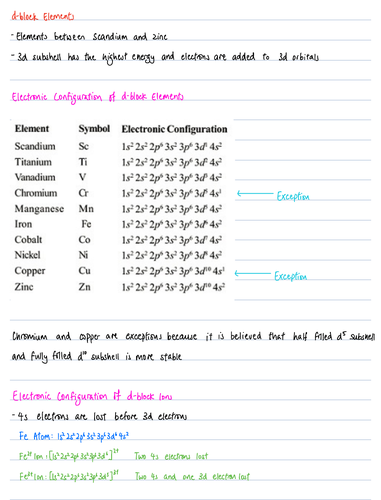 d-block Elements
- Elements between Scandium and zinc
- 3d subshell has the highest energy and electrons are added to 3d orbitals
Electronic Configuration of d-block Elements
Element Symbol Electronic Configuration
Scandium Sc 1s² 2s² 2p⁶ 3s² 3p⁶ 3d¹ 4s²
Titanium Ti 1s² 2s² 2p⁶ 3s² 3p⁶ 3d² 4s²
Vanadium V 1s² 2s² 2p⁶ 3s² 3p⁶ 3d³ 4s²
Chromium Cr 1s² 2s² 2p⁶ 3s² 3p⁶ 3d⁵ 4s¹ ← Exception
Manganese Mn 1s² 2s² 2p⁶ 3s² 3p⁶ 3d⁵ 4s²
Iron Fe 1s² 2s² 2p⁶ 3s² 3p⁶ 3d⁶ 4s²
Cobalt Co 1s² 2s² 2p⁶ 3s² 3p⁶ 3d⁷ 4s²
Nickel Ni 1s² 2s² 2p⁶ 3s² 3p⁶ 3d⁸ 4s²
Copper Cu 1s² 2s² 2p⁶ 3s² 3p⁶ 3d¹⁰ 4s¹ ← Exception
Zinc Zn 1s² 2s² 2p⁶ 3s² 3p⁶ 3d¹⁰ 4s²
Chromium and copper are exceptions because it is believed that half filled d⁵ subshell
and fully filled d¹⁰ subshell is more stable
Electronic Configuration of d-block Ions
- 4s electrons are lost before 3d electrons
Fe Atom: 1s² 2s² 2p⁶ 3s² 3p⁶ 3d⁶ 4s²
Fe²⁺ Ion: [1s² 2s² 2p⁶ 3s² 3p⁶ 3d⁶]²⁺ Two 4s electrons lost
Fe³⁺ Ion: [1s² 2s² 2p⁶ 3s² 3p⁶ 3d⁵]³⁺ Two 4s and one 3d electron lost